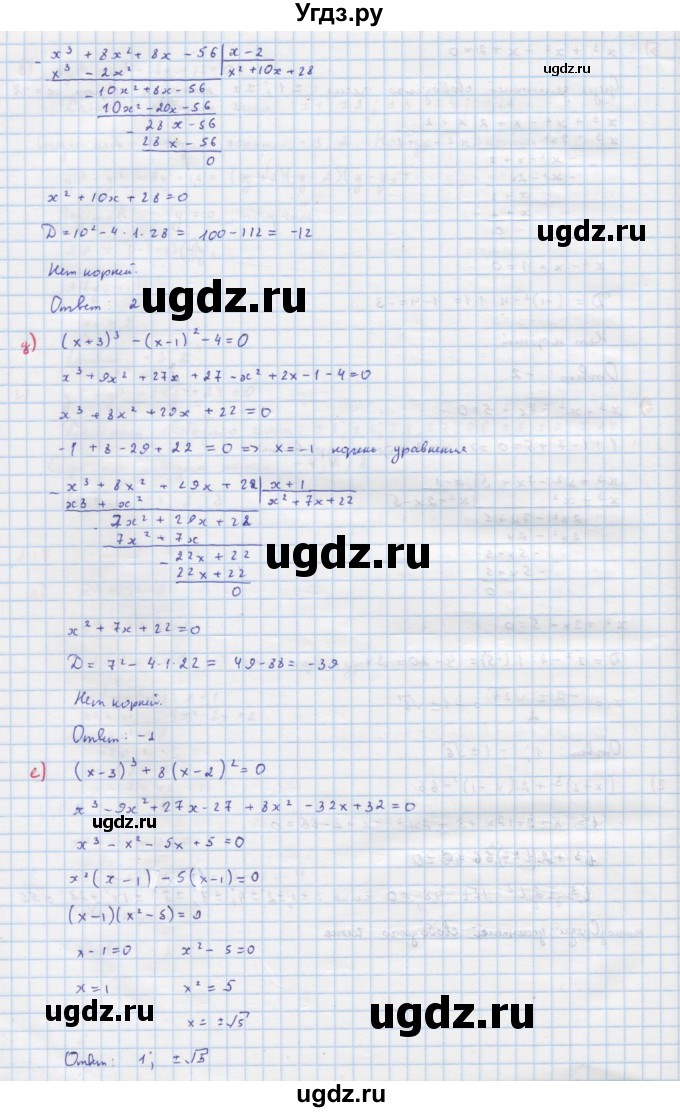 Угдз.ру
- x³ + 8x² + 8x - 56 | x - 2
x³ - 2x² | x² + 10x + 28
- 10x² + 8x - 56
10x² - 20x - 56
- 28x - 56
28x - 56
0
x² + 10x + 28 = 0
ugdz.ru
D = 10² - 4 · 1 · 28 = 100 - 112 = -12
Нет корней.
ugdz.ru
Ответ: 2
д) (x+3)³ - (x-1)² - 4 = 0
x³ + 9x² + 27x + 27 - x² + 2x - 1 - 4 = 0
x³ + 8x² + 29x + 22 = 0
-1 + 8 - 29 + 22 = 0 => x = -1 корень уравнения
- x³ + 8x² + 29x + 22 | x + 1
x3 + x² | x² + 7x + 22
- 7x² + 29x + 22
7x² + 7x
ugdz.ru
- 22x + 22
22x + 22
0
x² + 7x + 22 = 0
D = 7² - 4 · 1 · 22 = 49 - 88 = -39
Нет корней.
ugdz.ru
Ответ: -1
е) (x-3)³ + 8(x-2)² = 0
x³ - 9x² + 27x - 27 + 8x² - 32x + 32 = 0
ugdz.ru
x³ - x² - 5x + 5 = 0
x²(x-1) - 5(x-1) = 0
(x-1)(x²-5) = 0
x - 1 = 0 x² - 5 = 0
x = 1 x² = 5
ugdz.ru
ugdz.ru
x = ±√5
Ответ: 1; ±√5
ugdz.ru